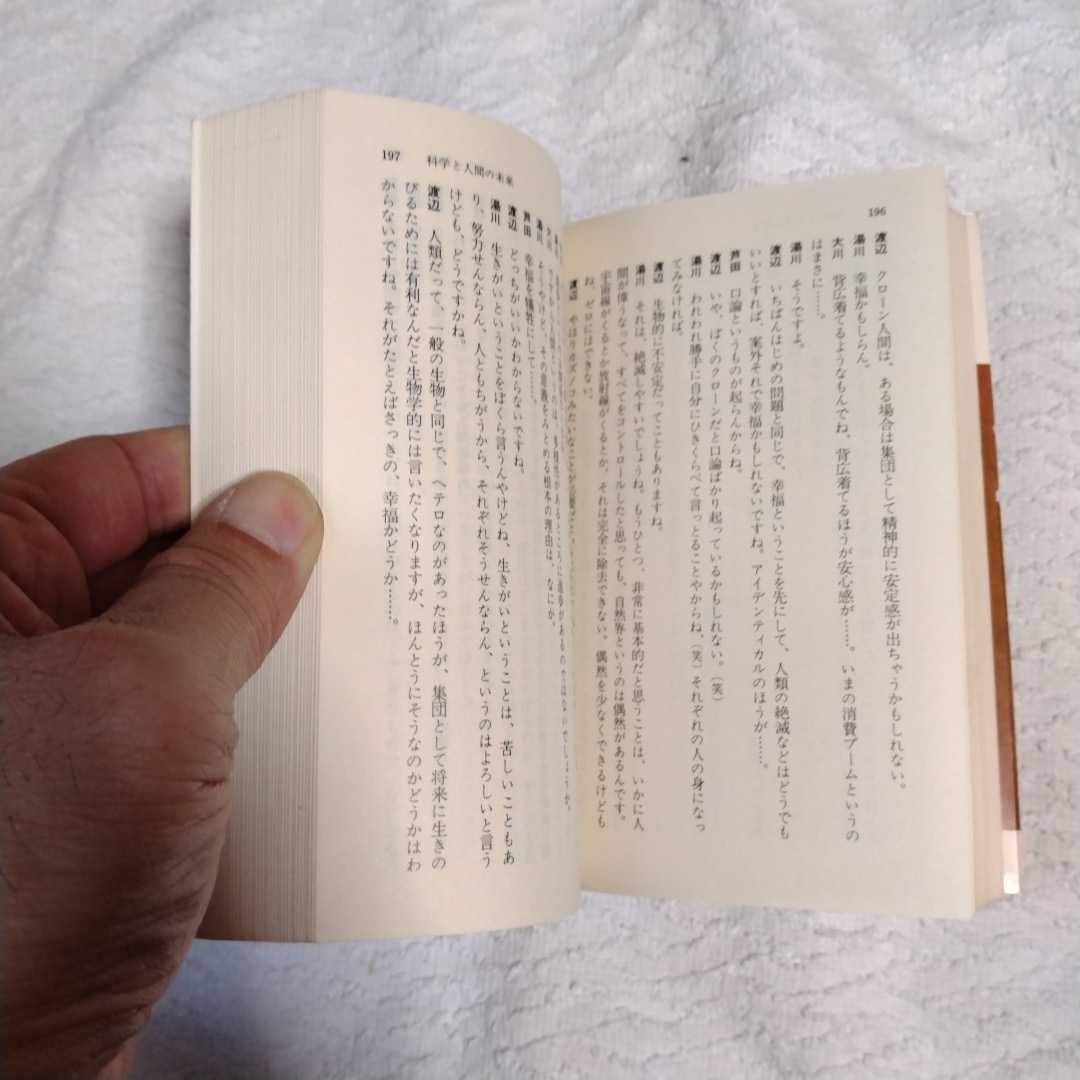 196
渡辺　クローン人間は、ある場合は集団として精神的に安定感が出ちゃうかもしれない。
湯川　幸福かもしらん。
大川　背広着てるようなもんでね、背広着てるほうが安心感が……。いまの消費ブームというの
はまさに……。
湯川　そうですよ。
渡辺　いちばんはじめの問題と同じで、幸福ということを先にして、人類の絶滅などはどうでも
いいとすれば、案外それで幸福かもしれないですね。アイデンティカルのほうが……。
芦田　口論というものが起らんからね。
渡辺　いや、ぼくのクローンだと口論ばかり起っているかもしれない。（笑）
湯川　われわれ勝手に自分にひきくらべて言っとることやからね、（笑）それぞれの人の身になっ
てみなければ。
渡辺　生物的に不安定だってこともありますね。
湯川　それは、絶滅しやすいでしょうね。もうひとつ、非常に基本的だと思うことは、いかに人
間が偉うなって、すべてをコントロールしたと思っても、自然界というのは偶然があるんです。
宇宙線がくるとか放射線がくるとか、それは完全に除去できない。偶然を少なくできるけども
ね、ゼロにはできない。
渡辺　やはりカズノコみたいなことが
197　科学と人間の未来
湯川　そうやけど、その意義をみとめる根本の理由は、なにか。
芦田　幸福を犠牲にして……。
渡辺　どっちがいいかわからないですね。
湯川　生きがいということをぼくら言うんやけどね、生きがいということは、苦しいこともあ
り、努力せんならん、人ともちがうから、それぞれそうせんならん、というのはよろしいと言う
けども、どうですかね。
渡辺　人類だって、一般の生物と同じで、ヘテロなのがあったほうが、集団として将来に生きの
びるためには有利なんだと生物学的には言いたくなりますが、ほんとうにそうなのかどうかはわ
からないですね。それがたとえばさっきの、幸福かどうか……。